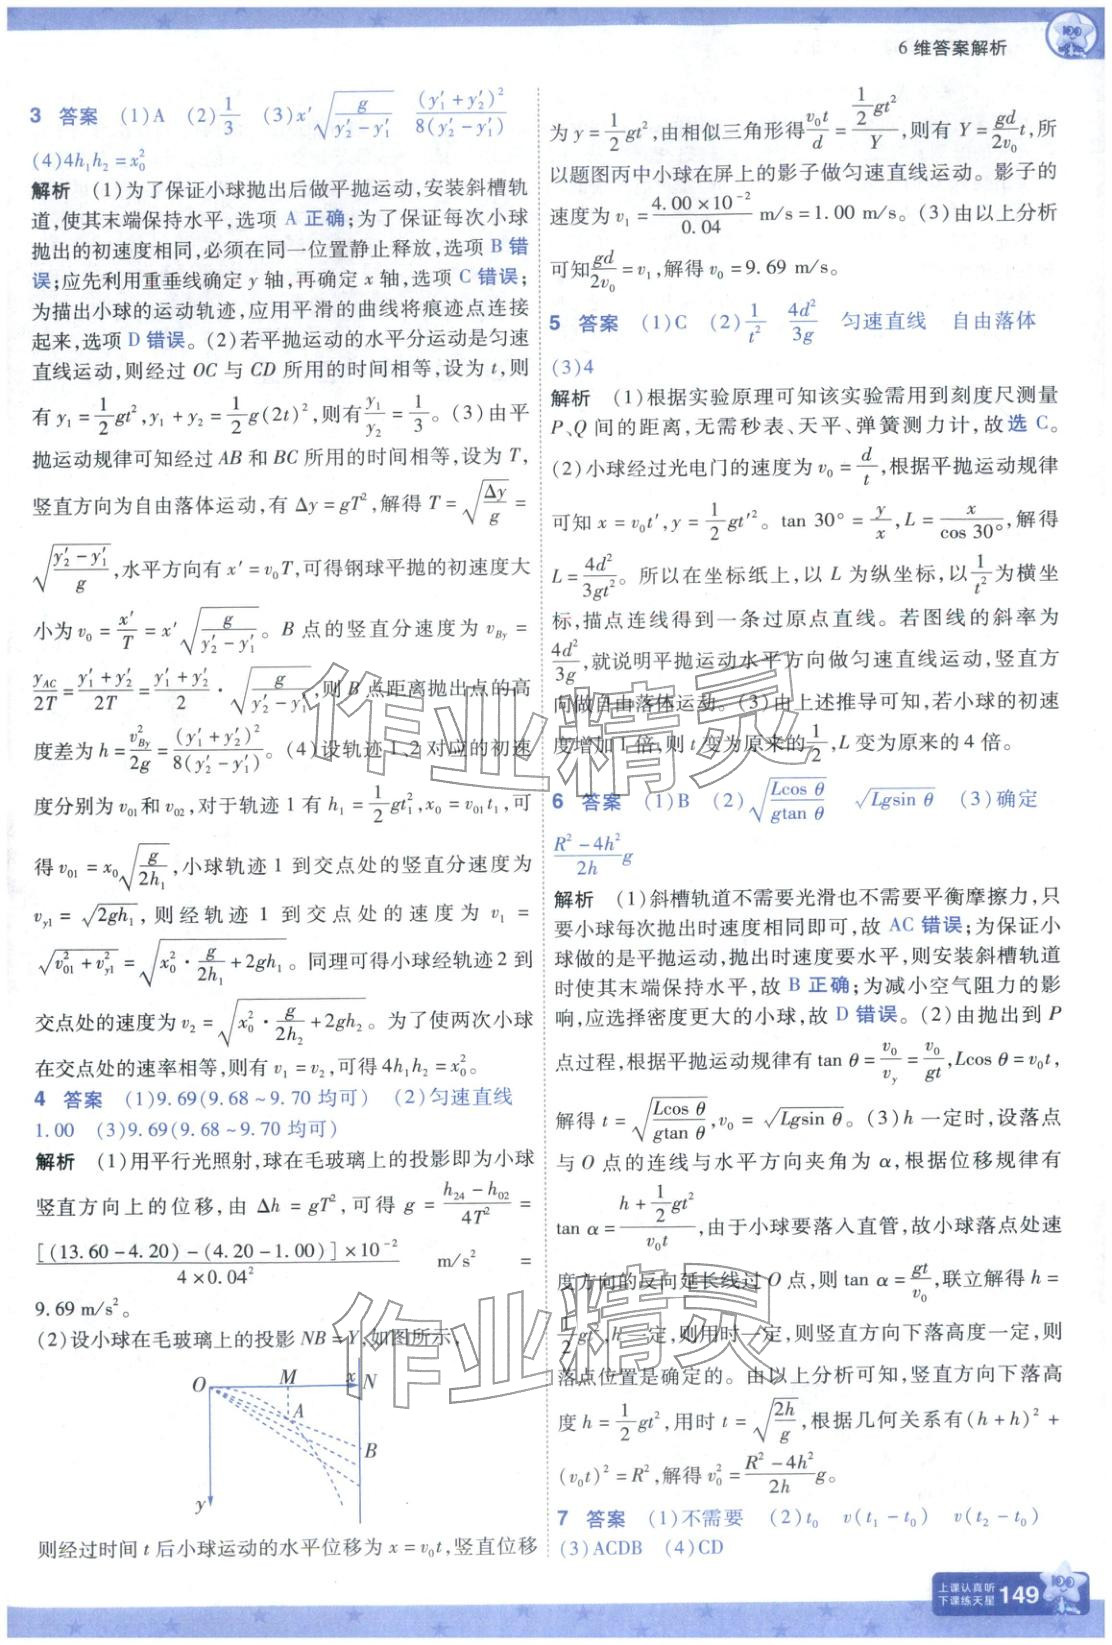 6 维答案解析
3 答案 (1)A (2)$\frac{1}{3}$ (3)$x'\sqrt{\frac{g}{y_2'-y_1'}}$ $\frac{(y_1'+y_2')^2}{8(y_2'-y_1')}$
(4)$4h_1h_2=x_0^2$
解析 (1)为了保证小球抛出后做平抛运动,安装斜槽轨
道,使其末端保持水平,选项 A 正确;为了保证每次小球
抛出的初速度相同,必须在同一位置静止释放,选项 B 错
误;应先利用重垂线确定 y 轴,再确定 x 轴,选项 C 错误;
为描出小球的运动轨迹,应用平滑的曲线将痕迹点连接
起来,选项 D 错误。(2)若平抛运动的水平分运动是匀速
直线运动,则经过 OC 与 CD 所用的时间相等,设为 t,则
有 $y_1=\frac{1}{2}gt^2$,$y_1+y_2=\frac{1}{2}g(2t)^2$,则有$\frac{y_1}{y_2}=\frac{1}{3}$。(3)由平
抛运动规律可知经过 AB 和 BC 所用的时间相等,设为 T,
竖直方向为自由落体运动,有 $\Delta y=gT^2$,解得 $T=\sqrt{\frac{\Delta y}{g}}=$
$\sqrt{\frac{y_2'-y_1'}{g}}$,水平方向有 $x'=v_0T$,可得钢球平抛的初速度大
小为 $v_0=\frac{x'}{T}=x'\sqrt{\frac{g}{y_2'-y_1'}}$。B 点的竖直分速度为 $v_{By}=$
$\frac{y_{AC}}{2T}=\frac{y_1'+y_2'}{2T}=\frac{y_1'+y_2'}{2}\cdot\sqrt{\frac{g}{y_2'-y_1'}}$,则 B 点距离抛出点的高
度差为 $h=\frac{v_{By}^2}{2g}=\frac{(y_1'+y_2')^2}{8(y_2'-y_1')}$。(4)设轨迹 1、2 对应的初速
度分别为 $v_{01}$和 $v_{02}$,对于轨迹 1 有 $h_1=\frac{1}{2}gt_1^2$,$x_0=v_{01}t_1$,可
得 $v_{01}=x_0\sqrt{\frac{g}{2h_1}}$,小球轨迹 1 到交点处的竖直分速度为
$v_{y1}=\sqrt{2gh_1}$,则经轨迹 1 到交点处的速度为 $v_1=$
$\sqrt{v_{01}^2+v_{y1}^2}=\sqrt{x_0^2\cdot\frac{g}{2h_1}+2gh_1}$。同理可得小球经轨迹 2 到
交点处的速度为 $v_2=\sqrt{x_0^2\cdot\frac{g}{2h_2}+2gh_2}$。为了使两次小球
在交点处的速率相等,则有 $v_1=v_2$,可得 $4h_1h_2=x_0^2$。
4 答案 (1)9.69(9.68~9.70 均可) (2)匀速直线
1.00 (3)9.69(9.68~9.70 均可)
解析 (1)用平行光照射,球在毛玻璃上的投影即为小球
竖直方向上的位移,由 $\Delta h=gT^2$,可得 $g=\frac{h_{24}-h_{02}}{4T^2}=$
$\frac{[(13.60-4.20)-(4.20-1.00)]\times10^{-2}}{4\times0.04^2}$ m/s² =
9.69 m/s²。
(2)设小球在毛玻璃上的投影 NB=Y,如图所示,
O M x N
A
B
y
则经过时间 t 后小球运动的水平位移为 $x=v_0t$,竖直位移
为 $y=\frac{1}{2}gt^2$,由相似三角形得$\frac{v_0t}{d}=\frac{\frac{1}{2}gt^2}{Y}$,则有 $Y=\frac{gd}{2v_0}t$,所
以题图丙中小球在屏上的影子做匀速直线运动。影子的
速度为 $v_1=\frac{4.00\times10^{-2}}{0.04}$ m/s=1.00 m/s。(3)由以上分析
可知$\frac{gd}{2v_0}=v_1$,解得 $v_0=9.69$ m/s。
5 答案 (1)C (2)$\frac{1}{t^2}$ $\frac{4d^2}{3g}$ 匀速直线 自由落体
(3)4
解析 (1)根据实验原理可知该实验需用到刻度尺测量
P、Q 间的距离,无需秒表、天平、弹簧测力计,故选 C。
(2)小球经过光电门的速度为 $v_0=\frac{d}{t}$,根据平抛运动规律
可知 $x=v_0t'$,$y=\frac{1}{2}gt'^2$。$\tan 30°=\frac{y}{x}$,$L=\frac{x}{\cos 30°}$,解得
$L=\frac{4d^2}{3gt^2}$。所以在坐标纸上,以 L 为纵坐标,以$\frac{1}{t^2}$为横坐
标,描点连线得到一条过原点直线。若图线的斜率为
$\frac{4d^2}{3g}$,就说明平抛运动水平方向做匀速直线运动,竖直方
向做自由落体运动。(3)由上述推导可知,若小球的初速
度增加 1 倍,则 t 变为原来的$\frac{1}{2}$,L 变为原来的 4 倍。
6 答案 (1)B (2)$\sqrt{\frac{L\cos\theta}{g\tan\theta}}$ $\sqrt{Lg\sin\theta}$ (3)确定
$\frac{R^2-4h^2}{2h}g$
解析 (1)斜槽轨道不需要光滑也不需要平衡摩擦力,只
要小球每次抛出时速度相同即可,故 AC 错误;为保证小
球做的是平抛运动,抛出时速度要水平,则安装斜槽轨道
时使其末端保持水平,故 B 正确;为减小空气阻力的影
响,应选择密度更大的小球,故 D 错误。(2)由抛出到 P
点过程,根据平抛运动规律有 $\tan\theta=\frac{v_0}{v_y}=\frac{v_0}{gt}$,$L\cos\theta=v_0t$,
解得 $t=\sqrt{\frac{L\cos\theta}{g\tan\theta}}$,$v_0=\sqrt{Lg\sin\theta}$。(3)h 一定时,设落点
与 O 点的连线与水平方向夹角为 α,根据位移规律有
$\tan\alpha=\frac{h+\frac{1}{2}gt^2}{v_0t}$,由于小球要落入直管,故小球落点处速
度方向的反向延长线过 O 点,则 $\tan\alpha=\frac{gt}{v_0}$,联立解得 h=
$\frac{1}{2}gt^2$,h 一定,则用时一定,则竖直方向下落高度一定,则
落点位置是确定的。由以上分析可知,竖直方向下落高
度 $h=\frac{1}{2}gt^2$,用时 $t=\sqrt{\frac{2h}{g}}$,根据几何关系有$(h+h)^2+$
$(v_0t)^2=R^2$,解得 $v_0^2=\frac{R^2-4h^2}{2h}g$。
7 答案 (1)不需要 (2)$t_0$ $v(t_1-t_0)$ $v(t_2-t_0)$
(3)ACDB (4)CD
上课认真听
下课练天星
149
作业精灵
作业精灵